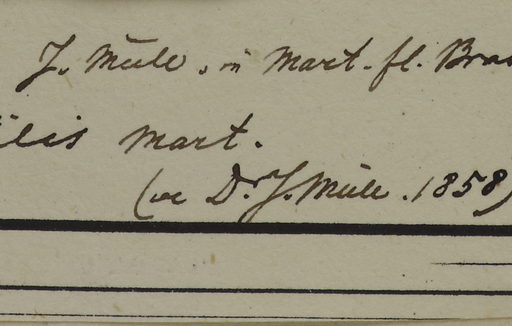 J. Müll. in Mart. fl. Bras
ilis Mart.
(ex Dr. J. Müll. 1858)